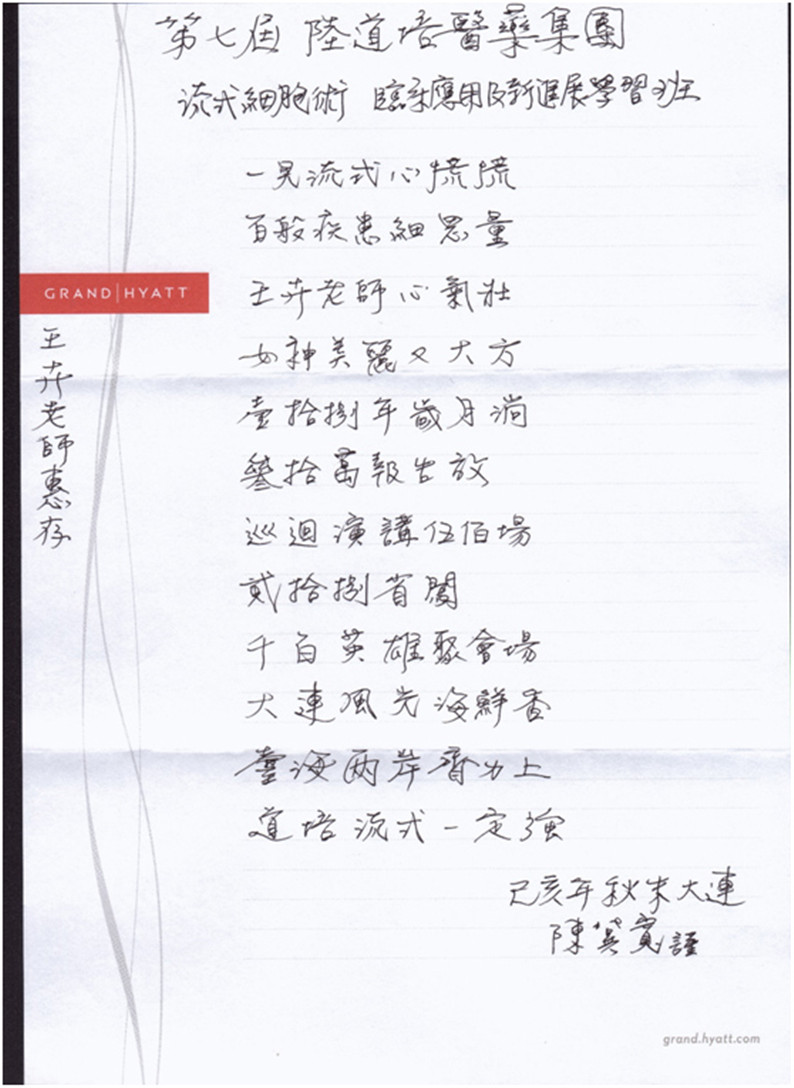 第七届 陸道培醫藥集團
流式細胞術 臨床應用及新進展學習班
一見流式心慌慌
百般疾患細思量
王卉老師心氣壯
女神美麗又大方
壹拾捌年歲月淌
叄拾萬報告放
巡迴演講伍佰場
貳拾捌省闖
千百英雄聚會場
大連風光海鮮香
臺海两岸齊力上
道培流式一定強
己亥年秋末大連
陳英寬謹
GRAND|HYATT
王卉老師惠存
grand.hyatt.com